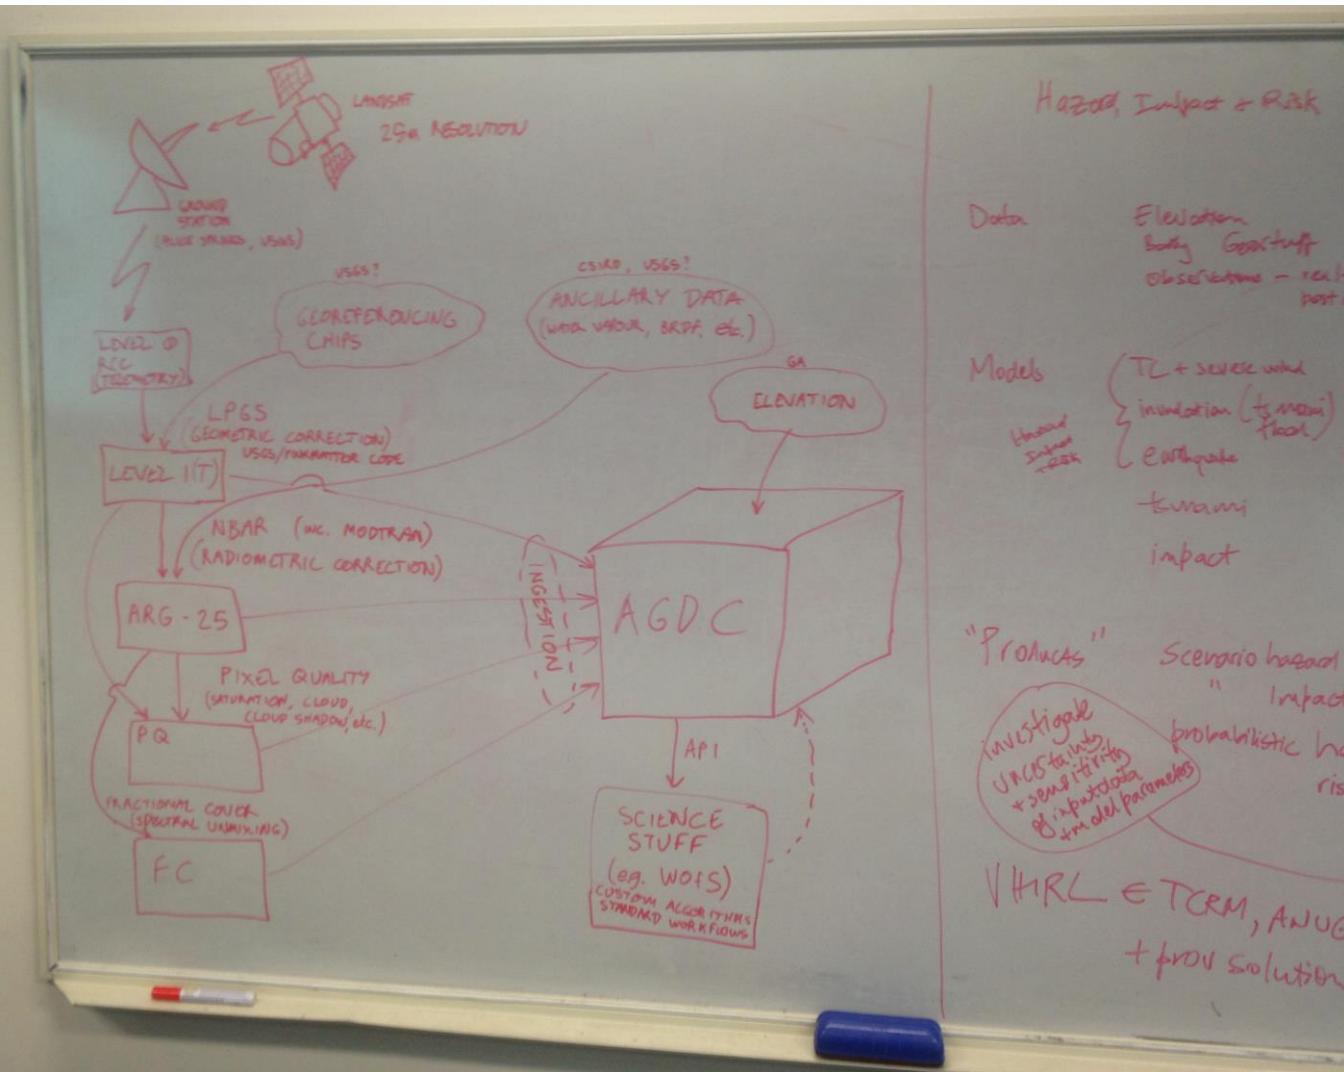 LANDSAT
25m RESOLUTION
GROUND
STATION
(ALICE SPRINGS, USGS)
USGS?
GEOREFERENCING
CHIPS
CSIRO, USGS?
ANCILLARY DATA
(WATER VAPOUR, BRDF, etc.)
GA
ELEVATION
LEVEL 0
RCC
(TELEMETRY)
LPGS
(GEOMETRIC CORRECTION)
USGS/PINKMATTER CODE
LEVEL 1(T)
NBAR (inc. MODTRAN)
(RADIOMETRIC CORRECTION)
ARG-25
INGESTION
AGDC
PIXEL QUALITY
(SATURATION, CLOUD,
CLOUD SHADOW, etc.)
PQ
FRACTIONAL COVER
(SPECTRAL UNMIXING)
FC
API
SCIENCE
STUFF
(eg. WOfS)
CUSTOM ALGORITHMS
STANDARD WORKFLOWS
Hazard, Impact + Risk
Data
Elevation
Geostuff
Observations -
Models
Hazard
Impact
+ Risk
TC + severe wind
inundation (tsunami
flood)
earthquake
tsunami
impact
"Products"
Scenario hazard
" Impact
probabilistic
investigate
uncertainty
+ sensitivity
of input data
+ model parameters
VHIRL ∈ TCRM,
+ prov solution